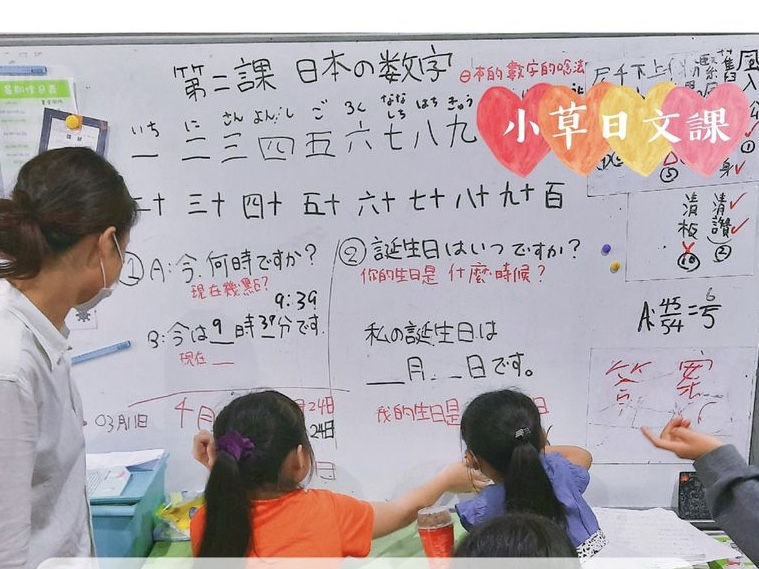 第二課 日本の数字
日本的數字的唸法
小草日文課
いち に さん よん/し ご ろく なな しち はち きゅう
一 二 三 四 五 六 七 八 九
二十 三十 四十 五十 六十 七十 八十 九十 百
① A: 今、何時ですか?
現在幾點?
9:39
B: 今は 9 時 39 分です.
現在
② 誕生日はいつですか?
你的生日是 什麼時候?
私の誕生日は
__月__日です。
我的生日是
03月11日
4月
24日
24日
日
清 清
板 讚
A: 45/54 = 6/5